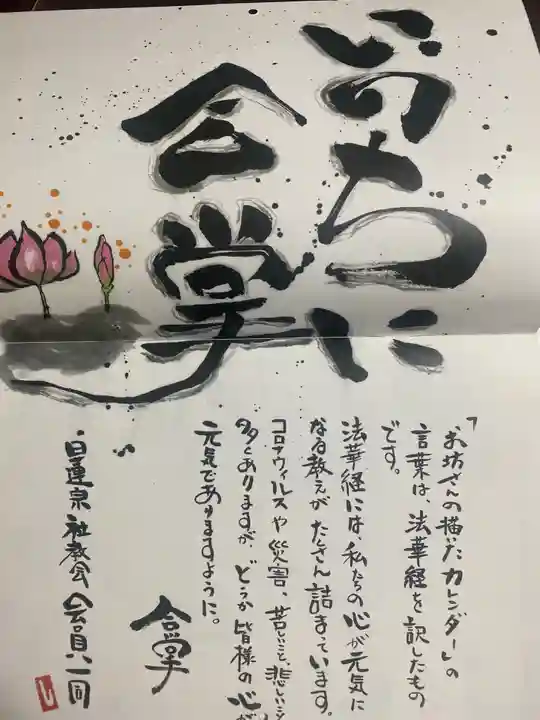 いのちに
合掌
「お坊さんの描いたカレンダー」の
言葉は、法華経を訳したもの
です。
法華経には、私たちの心が元気に
なる教えがたくさん詰まっています。
コロナウィルスや災害、苦しいこと、悲しいこと
多々ありますが、どうか皆様の心が
元気でありますように。
合掌
日蓮宗 社教会 会員一同